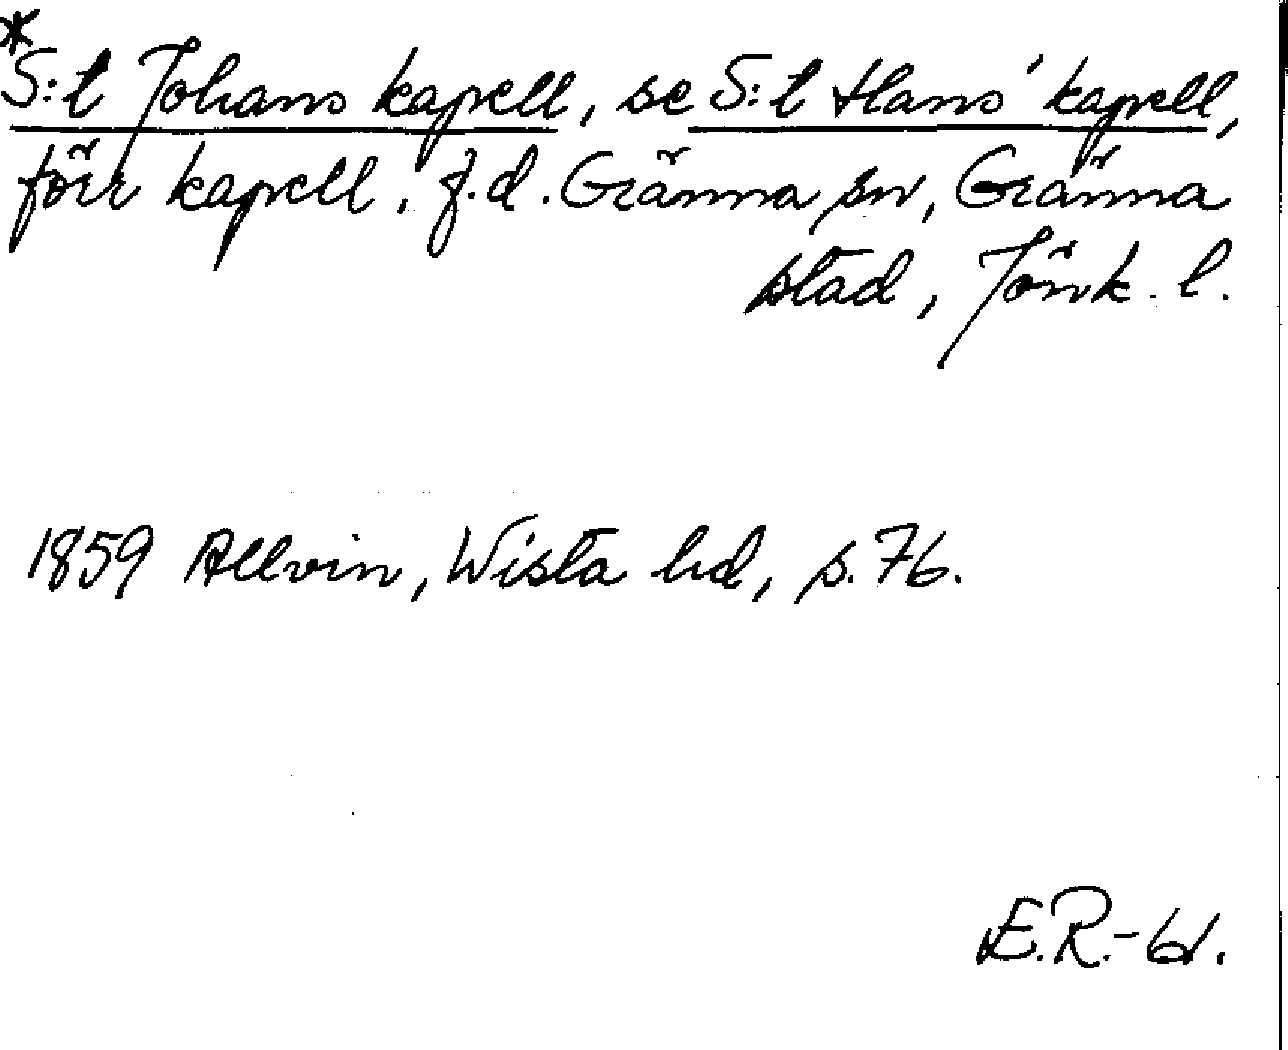 *
S:t Johans kapell, se S:t Hans' kapell,
förr kapell, f.d. Gränna sn, Gränna
stad, Jönk. l.
1859 Allvin, Wista hd, s. 76.
E.R.-61.